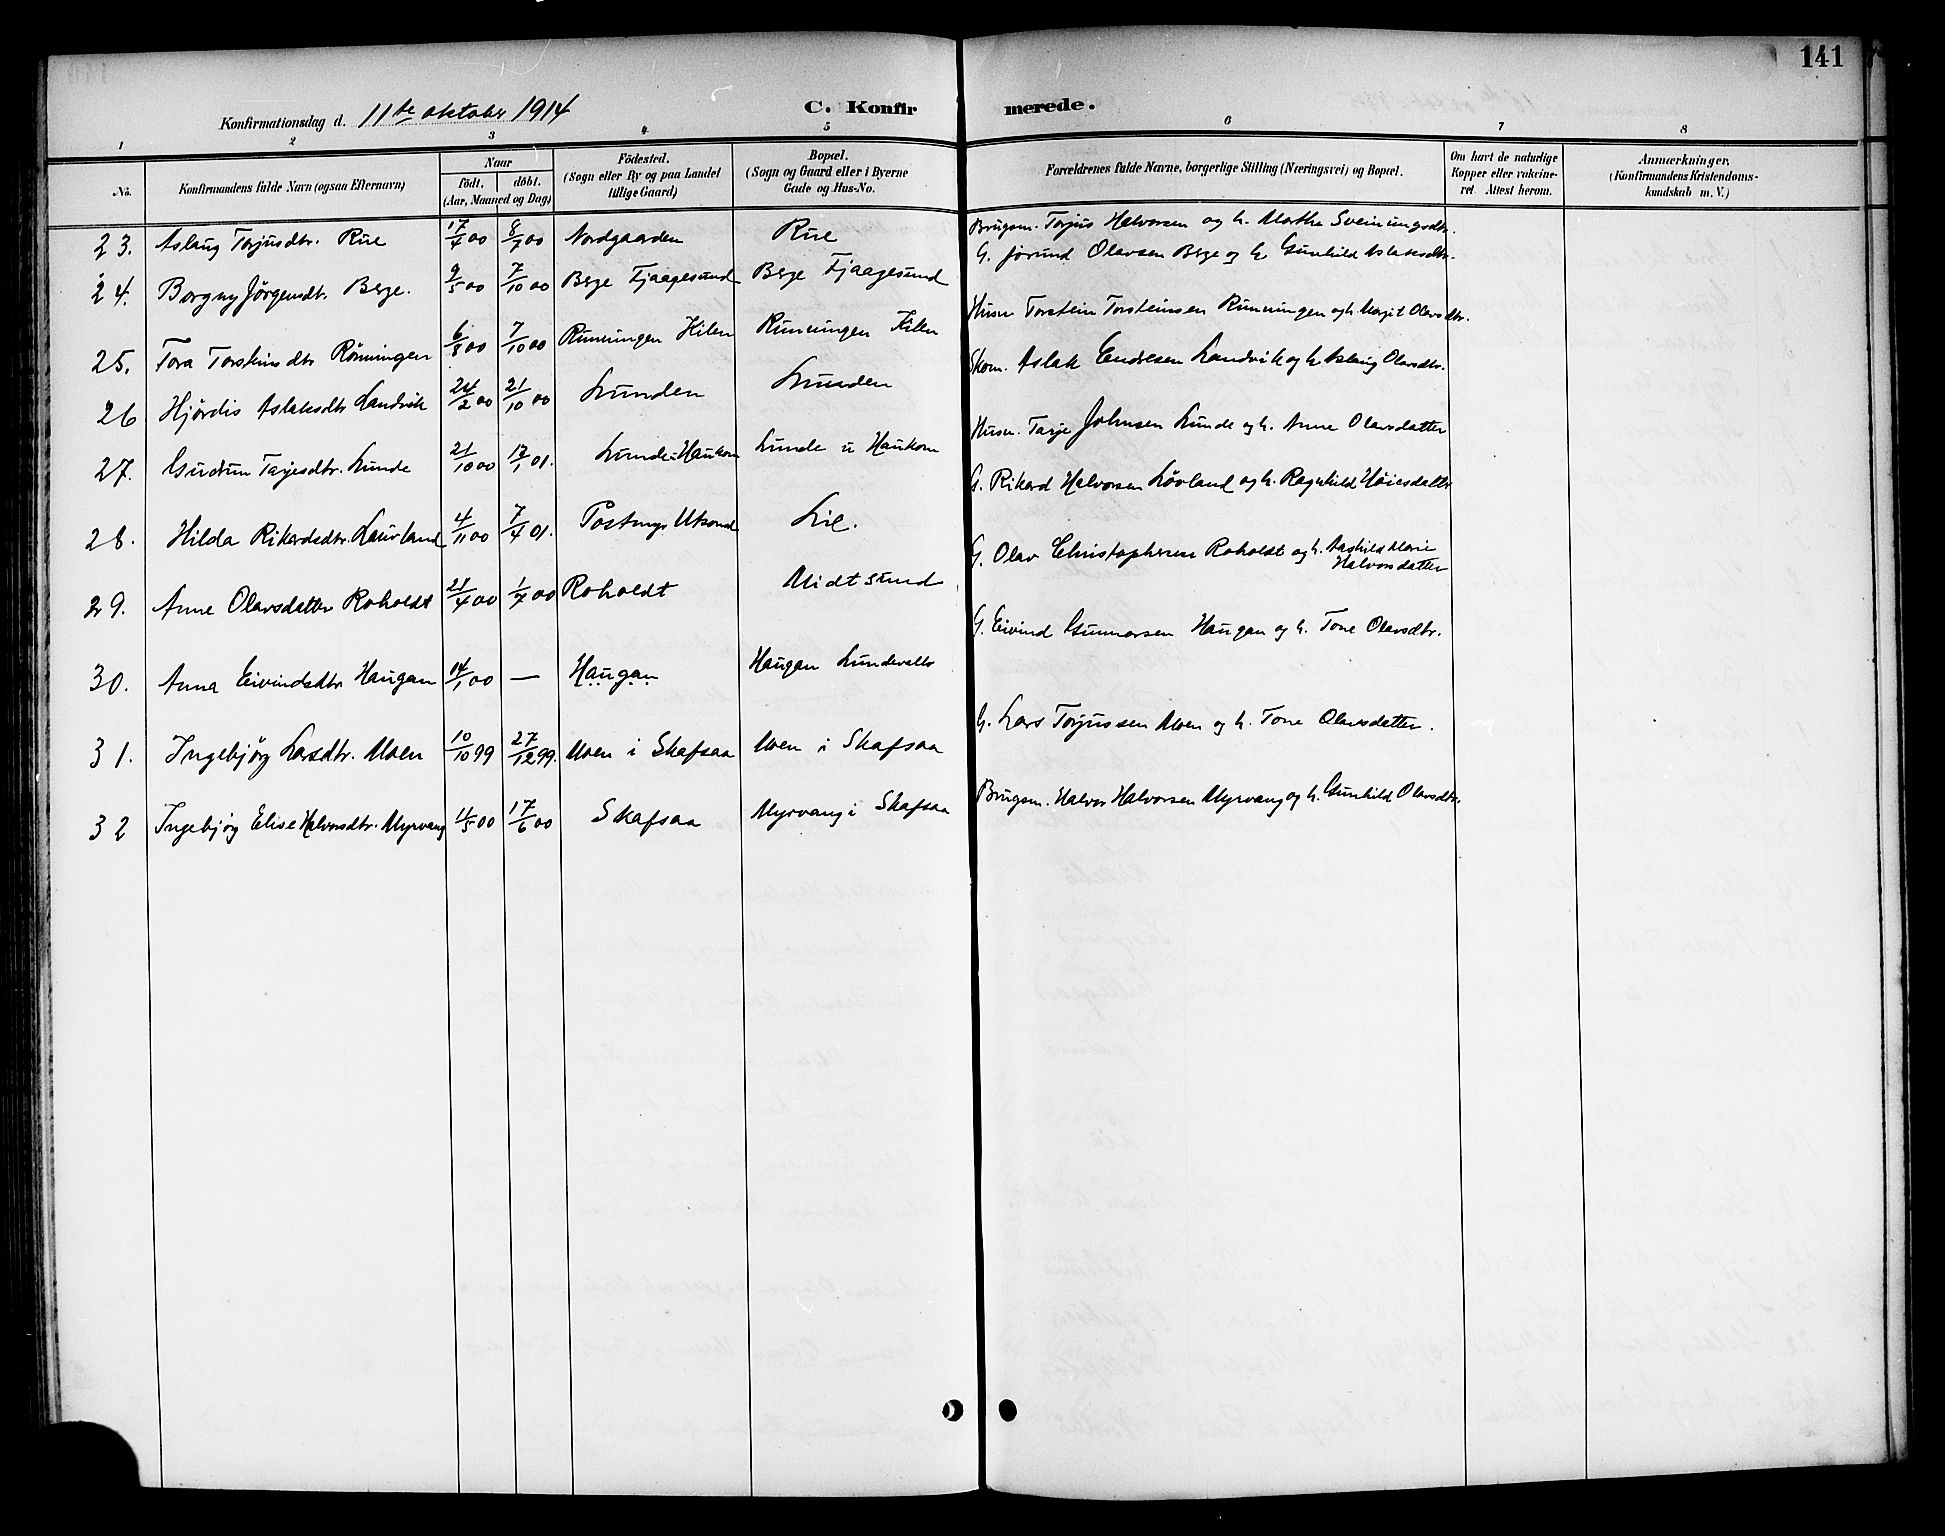 141
Konfirmationsdag d. 11te oktober 1914 C. Konfirmerede.
1 2 3 4 5 6 7 8
No. Konfirmandens fulde Navn (ogsaa Efternavn) Naar födt. döbt. (Aar, Maaned og Dag) Födested. (Sogn eller By og paa Landet tillige Gaard) Bopæl. (Sogn og Gaard eller i Byerne Gade og Hus-No. Forældrenes fulde Navne, borgerlige Stilling (Næringsvei) og Bopæl. Om havt de naturlige Kopper eller vakcineret. Attest herom. Anmærkninger. (Konfirmandens Kristendomskundskab m. V.)
23. Aslaug Torjusdtr. Rue 17/4 00 8/7 00 Nordgaarden Rue Brugsm. Torjus Halvorsen og h. Marthe Sveinungsdtr.
24. Borgny Jørgendtr. Berge. 9/5 00 7/10 00 Berge Fjaagesund Berge Fjaagesund G. Jørund Olavsen Berge og h Gunhild Aslaksdtr.
25. Tora Torsteinsdtr Rönningen 6/8 00 7/10 00 Runningen Kilen Runningen Kilen Husm Torstein Torsteinsen Runningen og h. Margit Olavsdtr.
26 Hjørdis Aslaksdtr Landvik 24/2 00 21/10 00 Lunden Lunden Skom. Aslak Endresen Landvik og h. Aslaug Olavsdtr.
27. Gudrun Tarjesdtr. Lunde 21/10 00 13/1 01. Lunde i Haukom Lunde u Haukom Husm. Tarje Johnsen Lunde og h. Anne Olavsdatter
28. Hilda Rikardsdtr. Laurland 4/11 00 7/4 01. Postmyr Utsund Lie. G. Rikard Halvorsen Lövland og h. Ragnhild Høiesdatter
29. Anne Olavsdatter Roholdt 21/4 00 1/7 00 Roholdt Midtsund G. Olav Christophersen Roholdt og h. Aashild Marie Halvorsdatter
30. Anna Eivindsdtr Haugan 14/1 00 — Haugan Haugan Lundevall G. Eivind Gunnarsen Haugan og h. Tone Olavsdtr.
31. Ingebjörg Larsdtr. Moen 10/10 99 27/12 99. Moen i Skafsaa Moen i Skafsaa G. Lars Torjussen Moen og h. Tone Olavsdatter.
32 Ingebjörg Elise Halvorsdtr. Myrvang 4/5 00 17/6 00 Skafsaa Myrvang i Skafsaa Brugsm. Halvor Halvorsen Myrvang og h. Gunhild Olavsdtr.